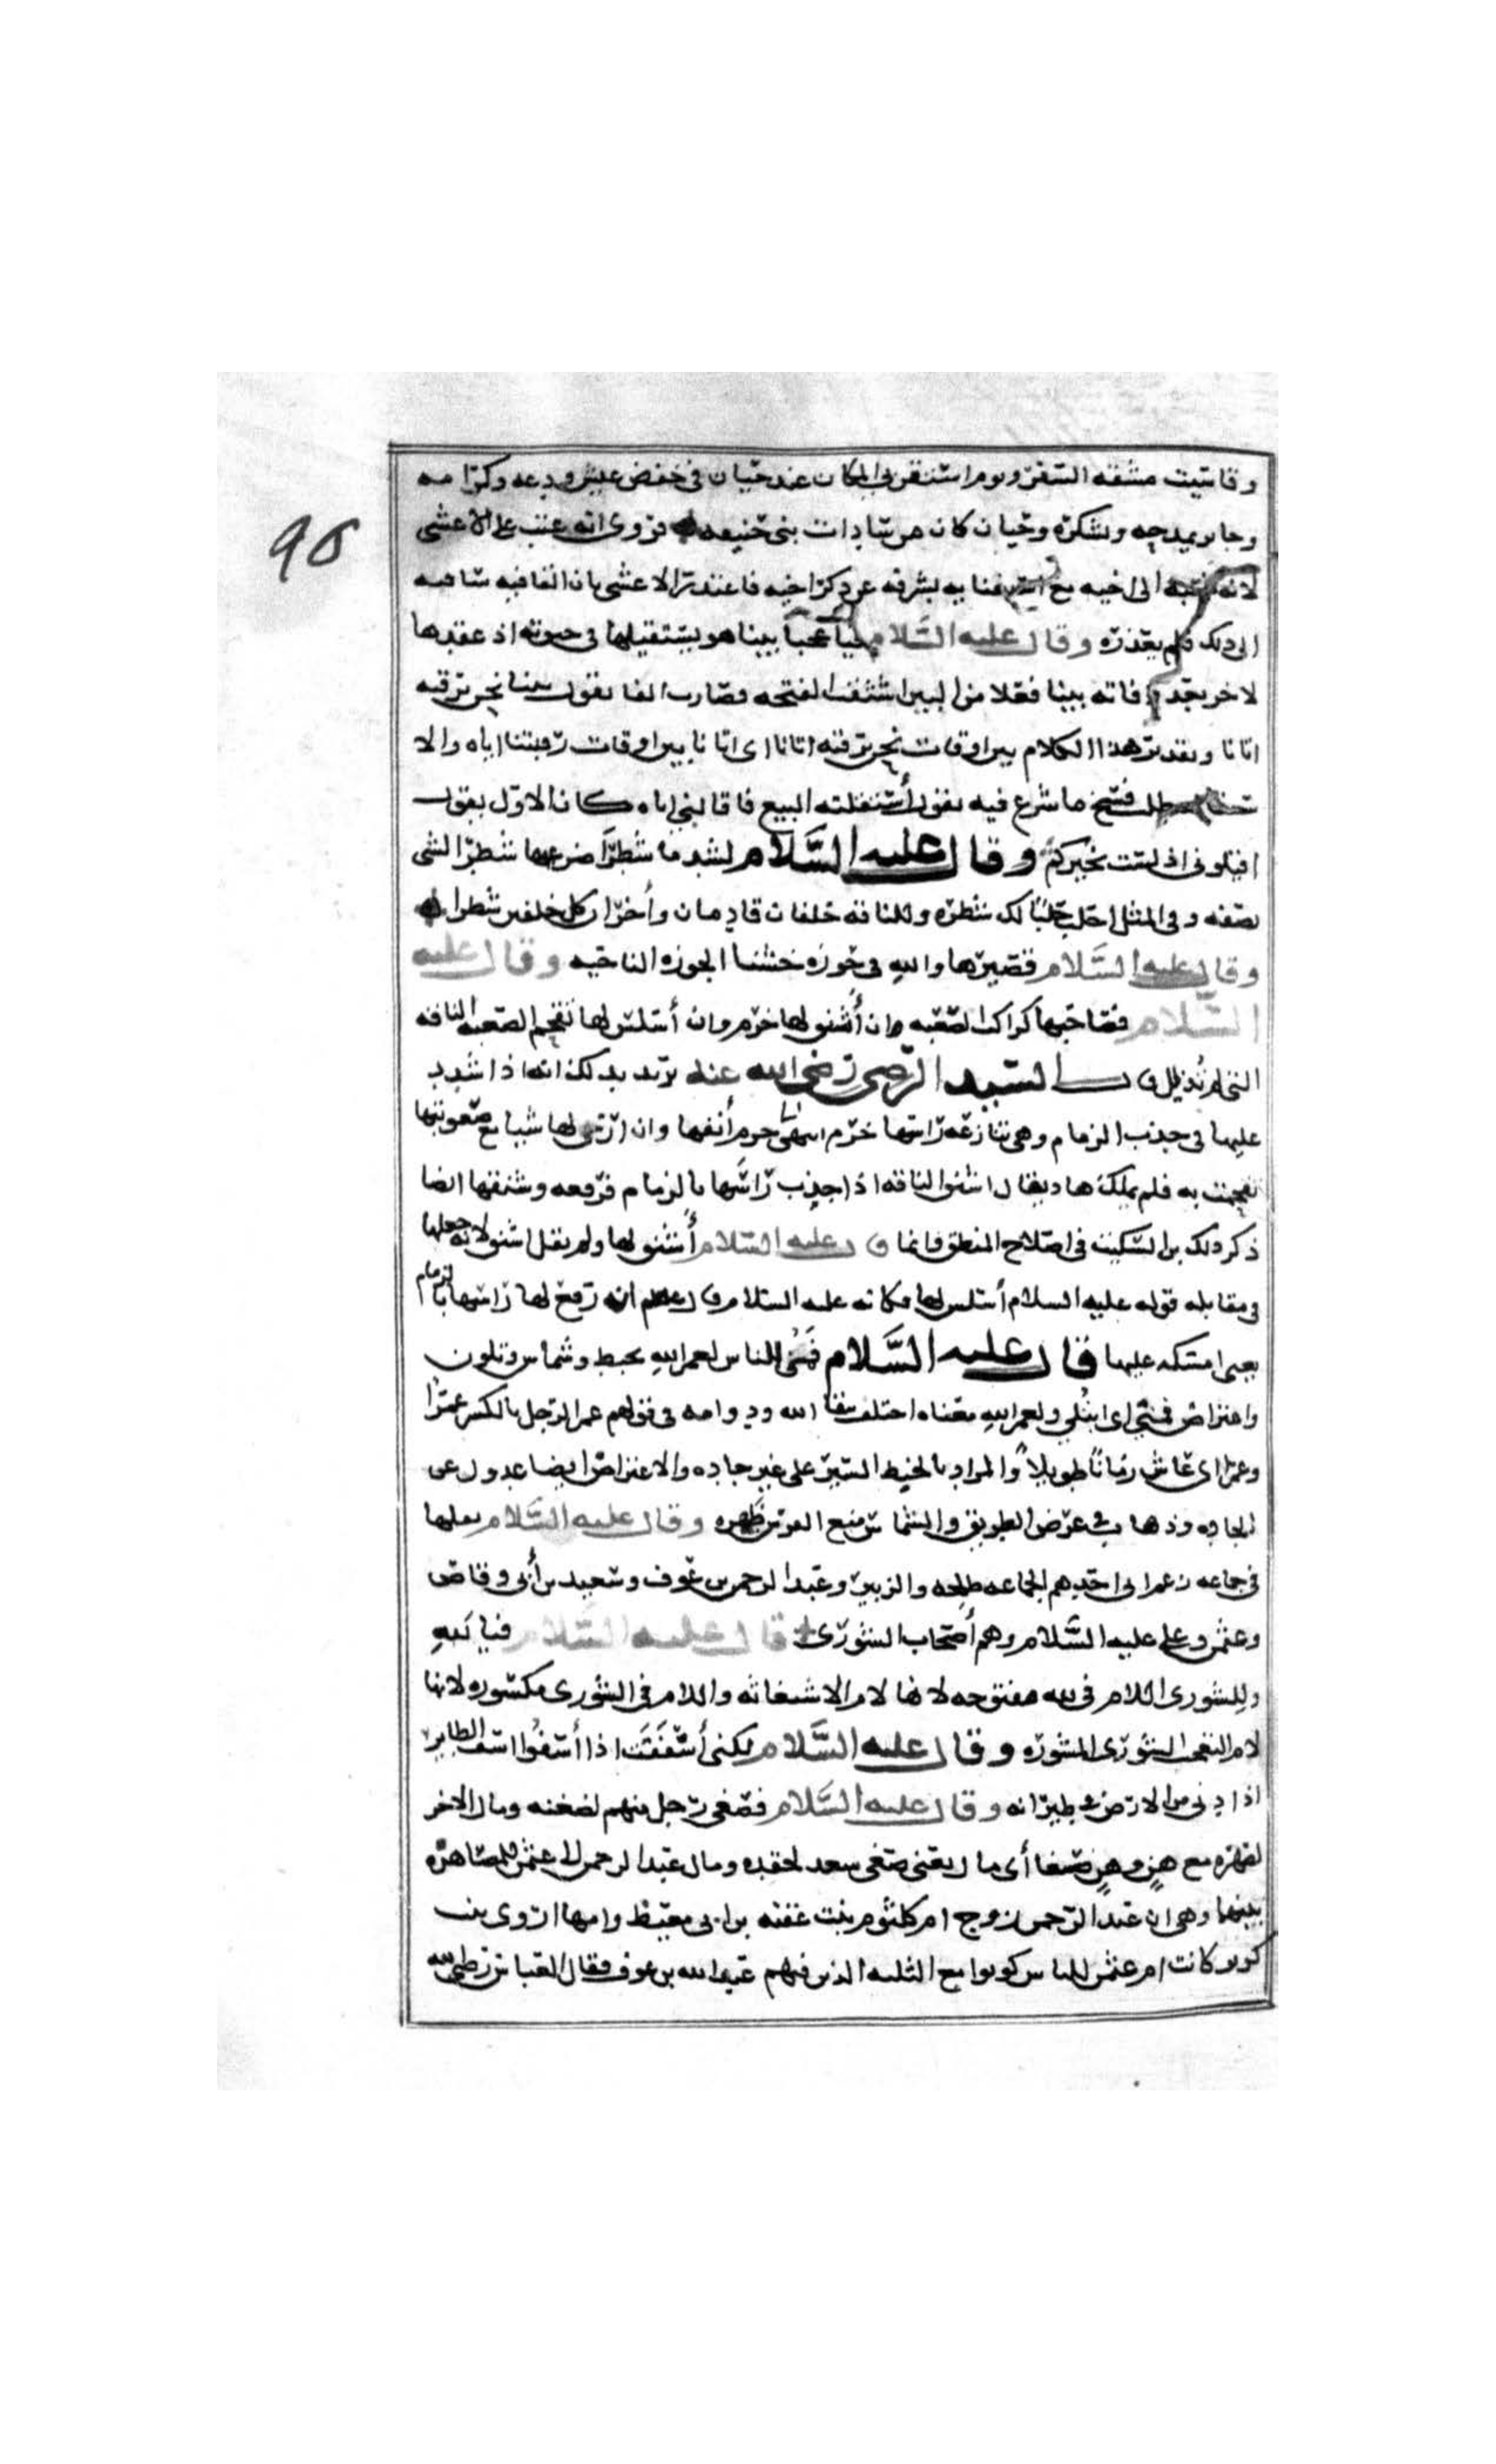 وقاسيت مشقه السفر ويوم استنقر بي المكان عند حيان في خفض عيش ودعه وكرامه
وجابر يمدحه ويشكره وحيان كان من سادات بني حنيفه فروى انه عتب على الاعشى
لانه نسبه الى اخيه مع استغنايه بشرفه عن ذكر اخيه فاعتذر الاعشى بان القافيه ساقته
95
الى ذلك فلم يعذره وقال عليه السلام فيا عجبا بينا هو يستقيلها في حيوته اذ عقدها
لاخر بعد وفاته بينا فعلا من البين اشبعت الفتحه فصارت الفا يقول بينا نحن نرقبه
اتانا وتقدير هذا الكلام بين اوقات نحن نرقبه اتانا اى اتانا بين اوقات رقبتنا اياه والا
طلب فسخ ما شرع فيه يقول أستقلته البيع فاقالني اياه كان الاول يقول
اقيلوني اذ لست بخيركم وقال عليه السَّلام لشد ما شطرا ضرعيها شطر الشى
نصفه وفي المثل احلب حلبا لك شطره وللناقه خلفان قادمان وأخران كل خلفين شطر
وقال عليه السَّلام فصيرها والله في حوزه خشنا الحوزه الناحيه وقال عليه
السَّلام فصاحبها كراكب الصعبه ان أشنق لها خرم وان أسلس لها تقحم الصعبه الناقه
التي لم تذلل قال السيد الرضى رضى الله عنه يريد بذلك انه اذا شدد
عليها في جذب الزمام وهي تنازعه راسها خرم أنفها وان ارخى لها شيا مع صعوبتها
تقحمت به فلم يملكها ويقال اشنق الناقه اذا جذب راسها بالزمام فرفعه وشنقها ايضا
ذكر ذلك بن السكيت في اصلاح المنطق وانما قال عليه السَّلام أشنق لها ولم يقل اشنقها لانه جعلها
في مقابله قوله عليه السلام أسلس لها فكانه عليه السلام قال ان رفع لها راسها بالزمام
يعنى امسكه عليها قال عليه السَّلام فَمُنى الناس لعمر الله بخبط وشماس وتلون
واعتراض فمنى اى ابتُلي ولعمر الله معناه احلف ببقا الله ودوامه في قولهم عمر الرجل بالكسر عمرا
وعمرا اى عاش زمانًا طويلاً والمراد بالخبط السير على غير جاده والاعتراض ايضا عدول عن
الجاده وذهاب في عرض الطريق والشماس منع الفرس ظهره وقال عليه السَّلام جعلها
في جماعه زعم انى احدهم الجماعه طلحه والزبير وعبد الرحمن بن عوف وسعد بن أبي وقاص
وعثمن وعلى عليه السَّلام وهم أصحاب الشورى قال عليه السَّلام فيا لَلهِ
وللشورى اللام في لله مفتوحه لانها لام الاستغاثه واللام في الشورى مكسوره لانها
لام التعجب الشورى المشوره وقال عليه السَّلام لكنى أسْفَفَتُ اذا أسَفُوا اسف الطاير
اذا دنى من الارض في طيرانه وقال عليه السَّلام فصغى رجل منهم لضغنه ومال الاخر
لصهره مع هنٍ وهنٍ صغا أى مال يعنى صغى سعد لحقده ومال عبد الرحمن الى عثمن للمصاهره
بينهما وهي ان عبد الرحمن زوج ام كلثوم بنت عقبه بن ابي معيط وامها اروى بنت
كريز كانت ام عثمن كونوا مع الثلثه الذين فيهم عبد الله بن عوف فقال العباس رضي الله